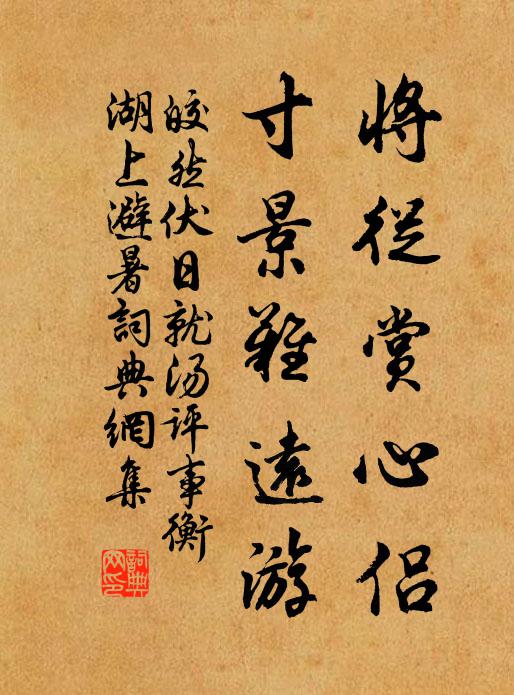 將從賞心侶
寸景難遠游
皎然伏日就湯評事衡
湖上避暑詞典網集
詞典网印